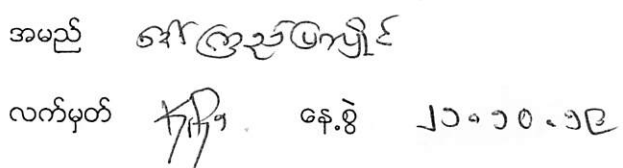 အမည် ဒေါ်ကြည်ပြာကျိုင်
လက်မှတ် နေ့စွဲ ၂၁.၁၀.၁၉